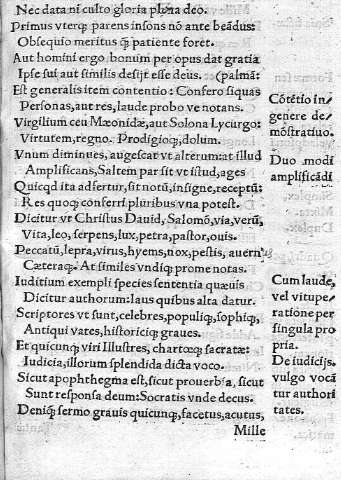 Nec data ni culto gloria plena deo.
Primus vterq; parens insons nõ ante beãdus:
Obsequio meritus q̃ patiente foret.
Aut homini ergo bonum per opus dat gratia
Ipse sui aut similis desijt esse deus. (palmã:
Est generalis item contentio: Confero siquas
Personas, aut res, laude probo ve notans.
Virgilium ceu Mæonidæ, aut Solona Lycurgo:
Virtutem, regno. Prodigioq;, dolum.
Vnum diminues, augescat vt alterum: at illud
Amplificans, Saltem par sit vt istud, ages
Quicqd ita adfertur, sit notũ, insigne, receptũ:
Res quoq; conferri pluribus vna potest.
Dicitur vt Christus Dauid, Salomõ, via, verũ,
Vita, leo, serpens, lux, petra, pastor, ouis.
Peccatũ, lepra, virus, hyems, nox, pestis, auernꝰ
Cæteraq;. At similes vndiq; prome notas.
Iuditium exempli species sententia quæuis
Dicitur authorum: laus quibus alta datur.
Scriptores vt sunt, celebres, populiq;, sophiq;,
Antiqui vates, historiciq; graues.
Et quicunq; viri Illustres, chartæq; sacratæ:
Iudicia, illorum splendida dicta voco.
Sicut apophthegma est, sicut prouerbia, sicut
Sunt responsa deum: Socratis vnde decus.
Deniq; sermo grauis quicunq;, facetus, acutus,
Mille
Cõtẽtio in
genere de⸗
mõstratiuo.
Duo modi
amplificãdi
Cum laude,
vel vitupe⸗
ratione per
singula pro
pria.
De iudicijs.
vulgo vocã
tur authori
tates.